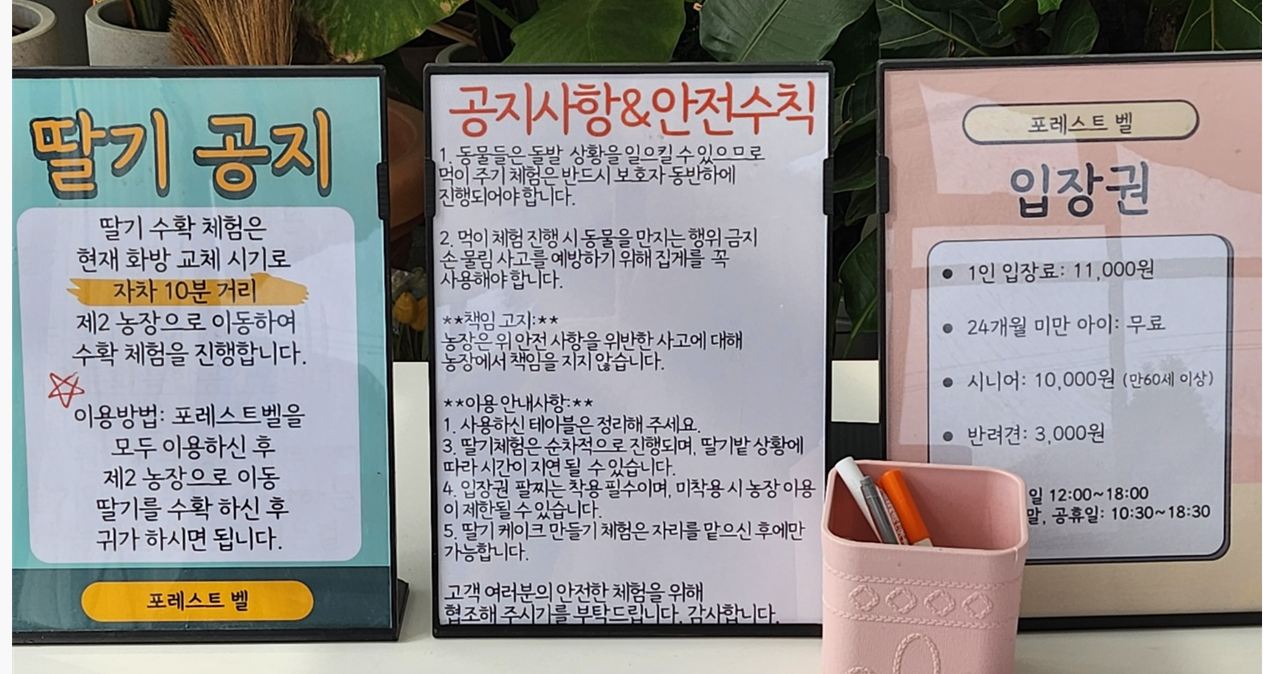 딸기 공지
딸기 수확 체험은
현재 화방 교체 시기로
자차 10분 거리
제2 농장으로 이동하여
수확 체험을 진행합니다.
이용방법: 포레스트벨을
모두 이용하신 후
제2 농장으로 이동
딸기를 수확 하신 후
귀가 하시면 됩니다.
포레스트 벨
공지사항&안전수칙
1. 동물들은 돌발 상황을 일으킬 수 있으므로
먹이 주기 체험은 반드시 보호자 동반하에
진행되어야 합니다.
2. 먹이 체험 진행 시 동물을 만지는 행위 금지
손 물림 사고를 예방하기 위해 집게를 꼭
사용해야 합니다.
**책임 고지:**
농장은 위 안전 사항을 위반한 사고에 대해
농장에서 책임을 지지 않습니다.
**이용 안내사항:**
1. 사용하신 테이블은 정리해 주세요.
3. 딸기체험은 순차적으로 진행되며, 딸기밭 상황에
따라 시간이 지연 될 수 있습니다.
4. 입장권 팔찌는 착용 필수이며, 미착용 시 농장 이용
이 제한될 수 있습니다.
5. 딸기 케이크 만들기 체험은 자리를 맡으신 후에만
가능합니다.
고객 여러분의 안전한 체험을 위해
협조해 주시기를 부탁드립니다. 감사합니다.
포레스트 벨
입장권
• 1인 입장료: 11,000원
• 24개월 미만 아이: 무료
• 시니어: 10,000원 (만60세 이상)
• 반려견: 3,000원
일 12:00~18:00
말, 공휴일: 10:30~18:30